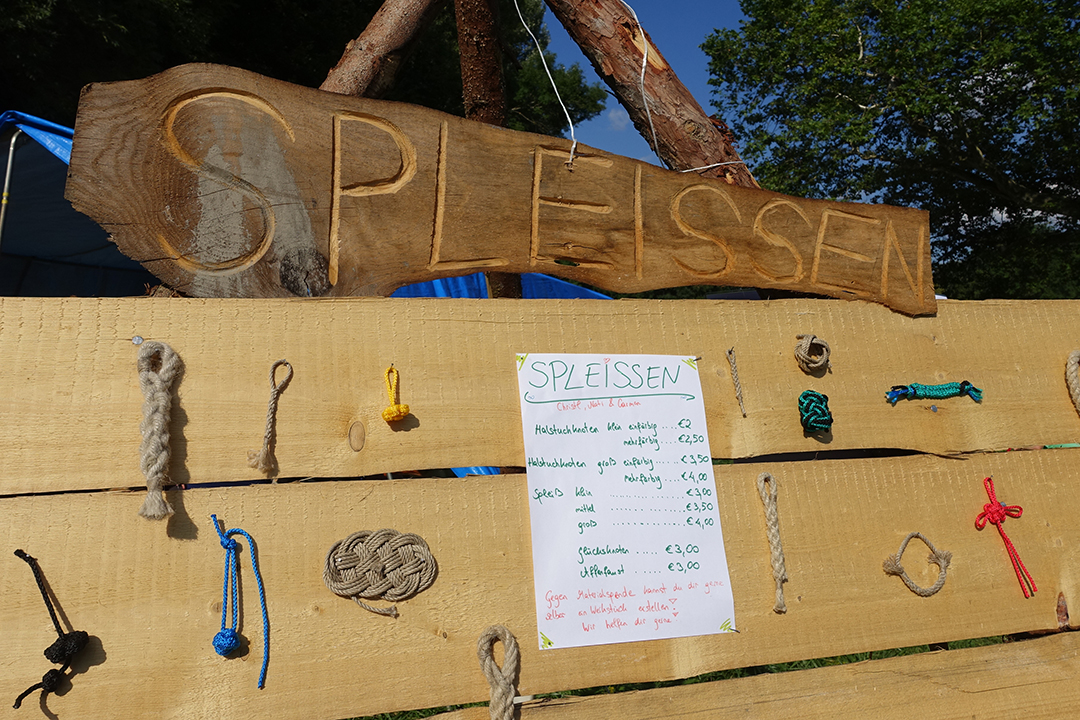 SPLEISSEN
SPLEISSEN
Christl, & Carmen
Halstuchknoten klein einfärbig .... €2
mehrfärbig .... €2,50
Halstuchknoten groß einfärbig .... €3,50
mehrfärbig .... €4,00
Spleiß klein .................. €3,00
mittel .................. €3,50
groß .................. €4,00
Glücksknoten ..... €3,00
Affenfaust ..... €3,00
Gegen Materialspende kannst du dir gerne
selber ein Werkstück erstellen!
Wir helfen dir gerne!